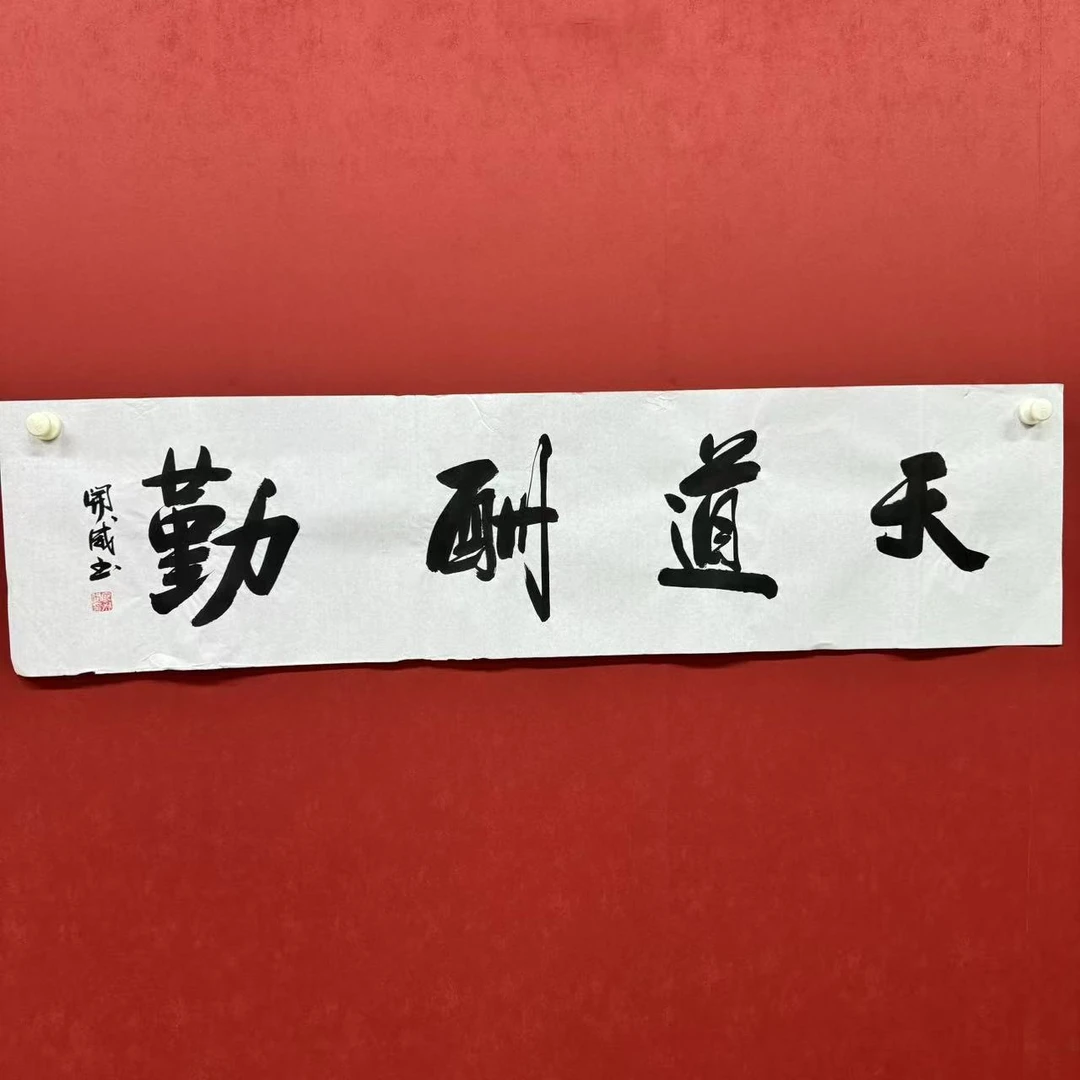 天道酬勤
開威书